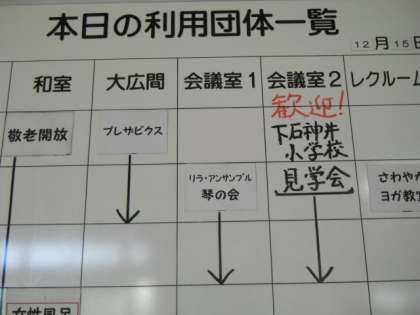 本日の利用団体一覧
12月15日
和室
大広間
会議室1
会議室2
レクルーム
敬老開放
プレサビクス
歓迎!
下石神井
小学校
見学会
リラ・アンサンブル
琴の会
さわやか
ヨガ教室
女性風呂